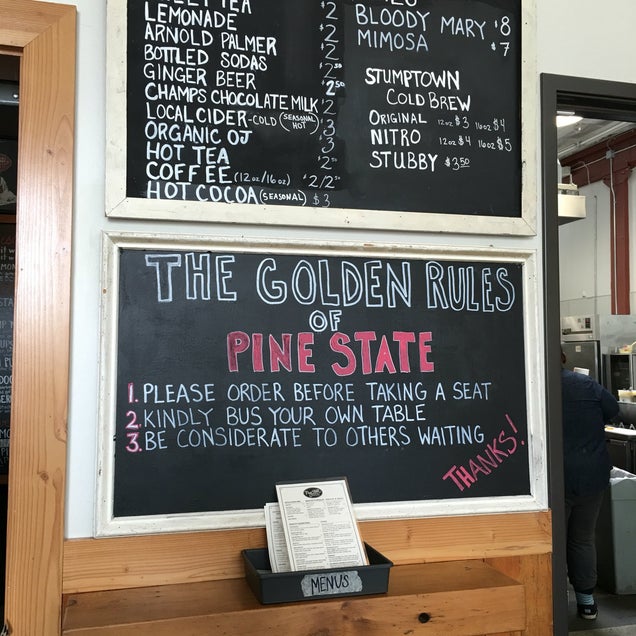 TEA $2
LEMONADE $2
ARNOLD PALMER $2
BOTTLED SODAS $2.50
GINGER BEER $2.50
CHAMPS CHOCOLATE MILK $2
LOCAL CIDER-COLD (SEASONAL HOT) $3
ORGANIC OJ $3
HOT TEA $2
COFFEE (12oz/16oz) $2/2.50
HOT COCOA (SEASONAL) $3
BLOODY MARY $8
MIMOSA $7
STUMPTOWN
COLD BREW
ORIGINAL 12oz $3 16oz $4
NITRO 12oz $4 16oz $5
STUBBY $3.50
THE GOLDEN RULES
OF
PINE STATE
1. PLEASE ORDER BEFORE TAKING A SEAT
2. KINDLY BUS YOUR OWN TABLE
3. BE CONSIDERATE TO OTHERS WAITING
THANKS!
MENUS